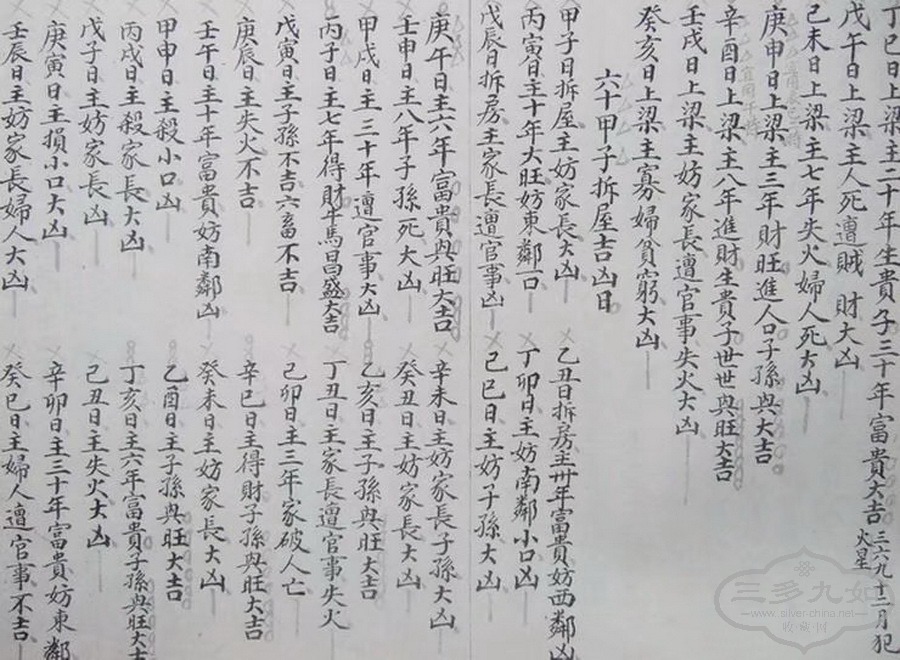 丁巳日上梁主二十年生貴子三十年富貴大吉 三六九十二月犯火星
戊午日上梁主人死遭賊 財大凶
己未日上梁主七年失火婦人死大凶
庚申日上梁主三年財旺進人口子孫興大吉
辛酉日上梁主八年進財生貴子世世興旺大吉
壬戌日上梁主妨家長遭官事失火大凶
癸亥日上梁主寡婦貧窮大凶
六十甲子拆屋吉凶日
甲子日拆屋主妨家長大凶 乙丑日拆房主卅年富貴妨西鄰凶
丙寅日主十年大旺妨東鄰一口 丁卯日主妨南鄰小口凶
戊辰日拆房主家長遭官事凶 己巳日主妨子孫大凶
庚午日主六年富貴興旺大吉 辛未日主妨家長子孫大凶
壬申日主八年子孫死大凶 癸丑日主妨家長大凶
甲戌日主三十年遭官事大凶 乙亥日主子孫興旺大吉
丙子日主七年得財牛馬昌盛大吉 丁丑日主家長遭官事失火
戊寅日主子孫不吉六畜不吉 己卯日主三年家破人亡
庚辰日主失火不吉 辛巳日主得財子孫興旺大吉
壬午日主十年富貴妨南鄰凶 癸未日主妨家長大凶
甲申日主殺小口凶 乙酉日主子孫興旺大吉
丙戌日主殺家長大凶 丁亥日主六年富貴子孫興旺大吉
戊子日主妨家長凶 己丑日主失火大凶
庚寅日主損小口大凶 辛卯日主三十年富貴妨東鄰
壬辰日主妨家長婦人大凶 癸巳日主婦人遭官事不吉
三多九如
www.silver-china.net
收藏网